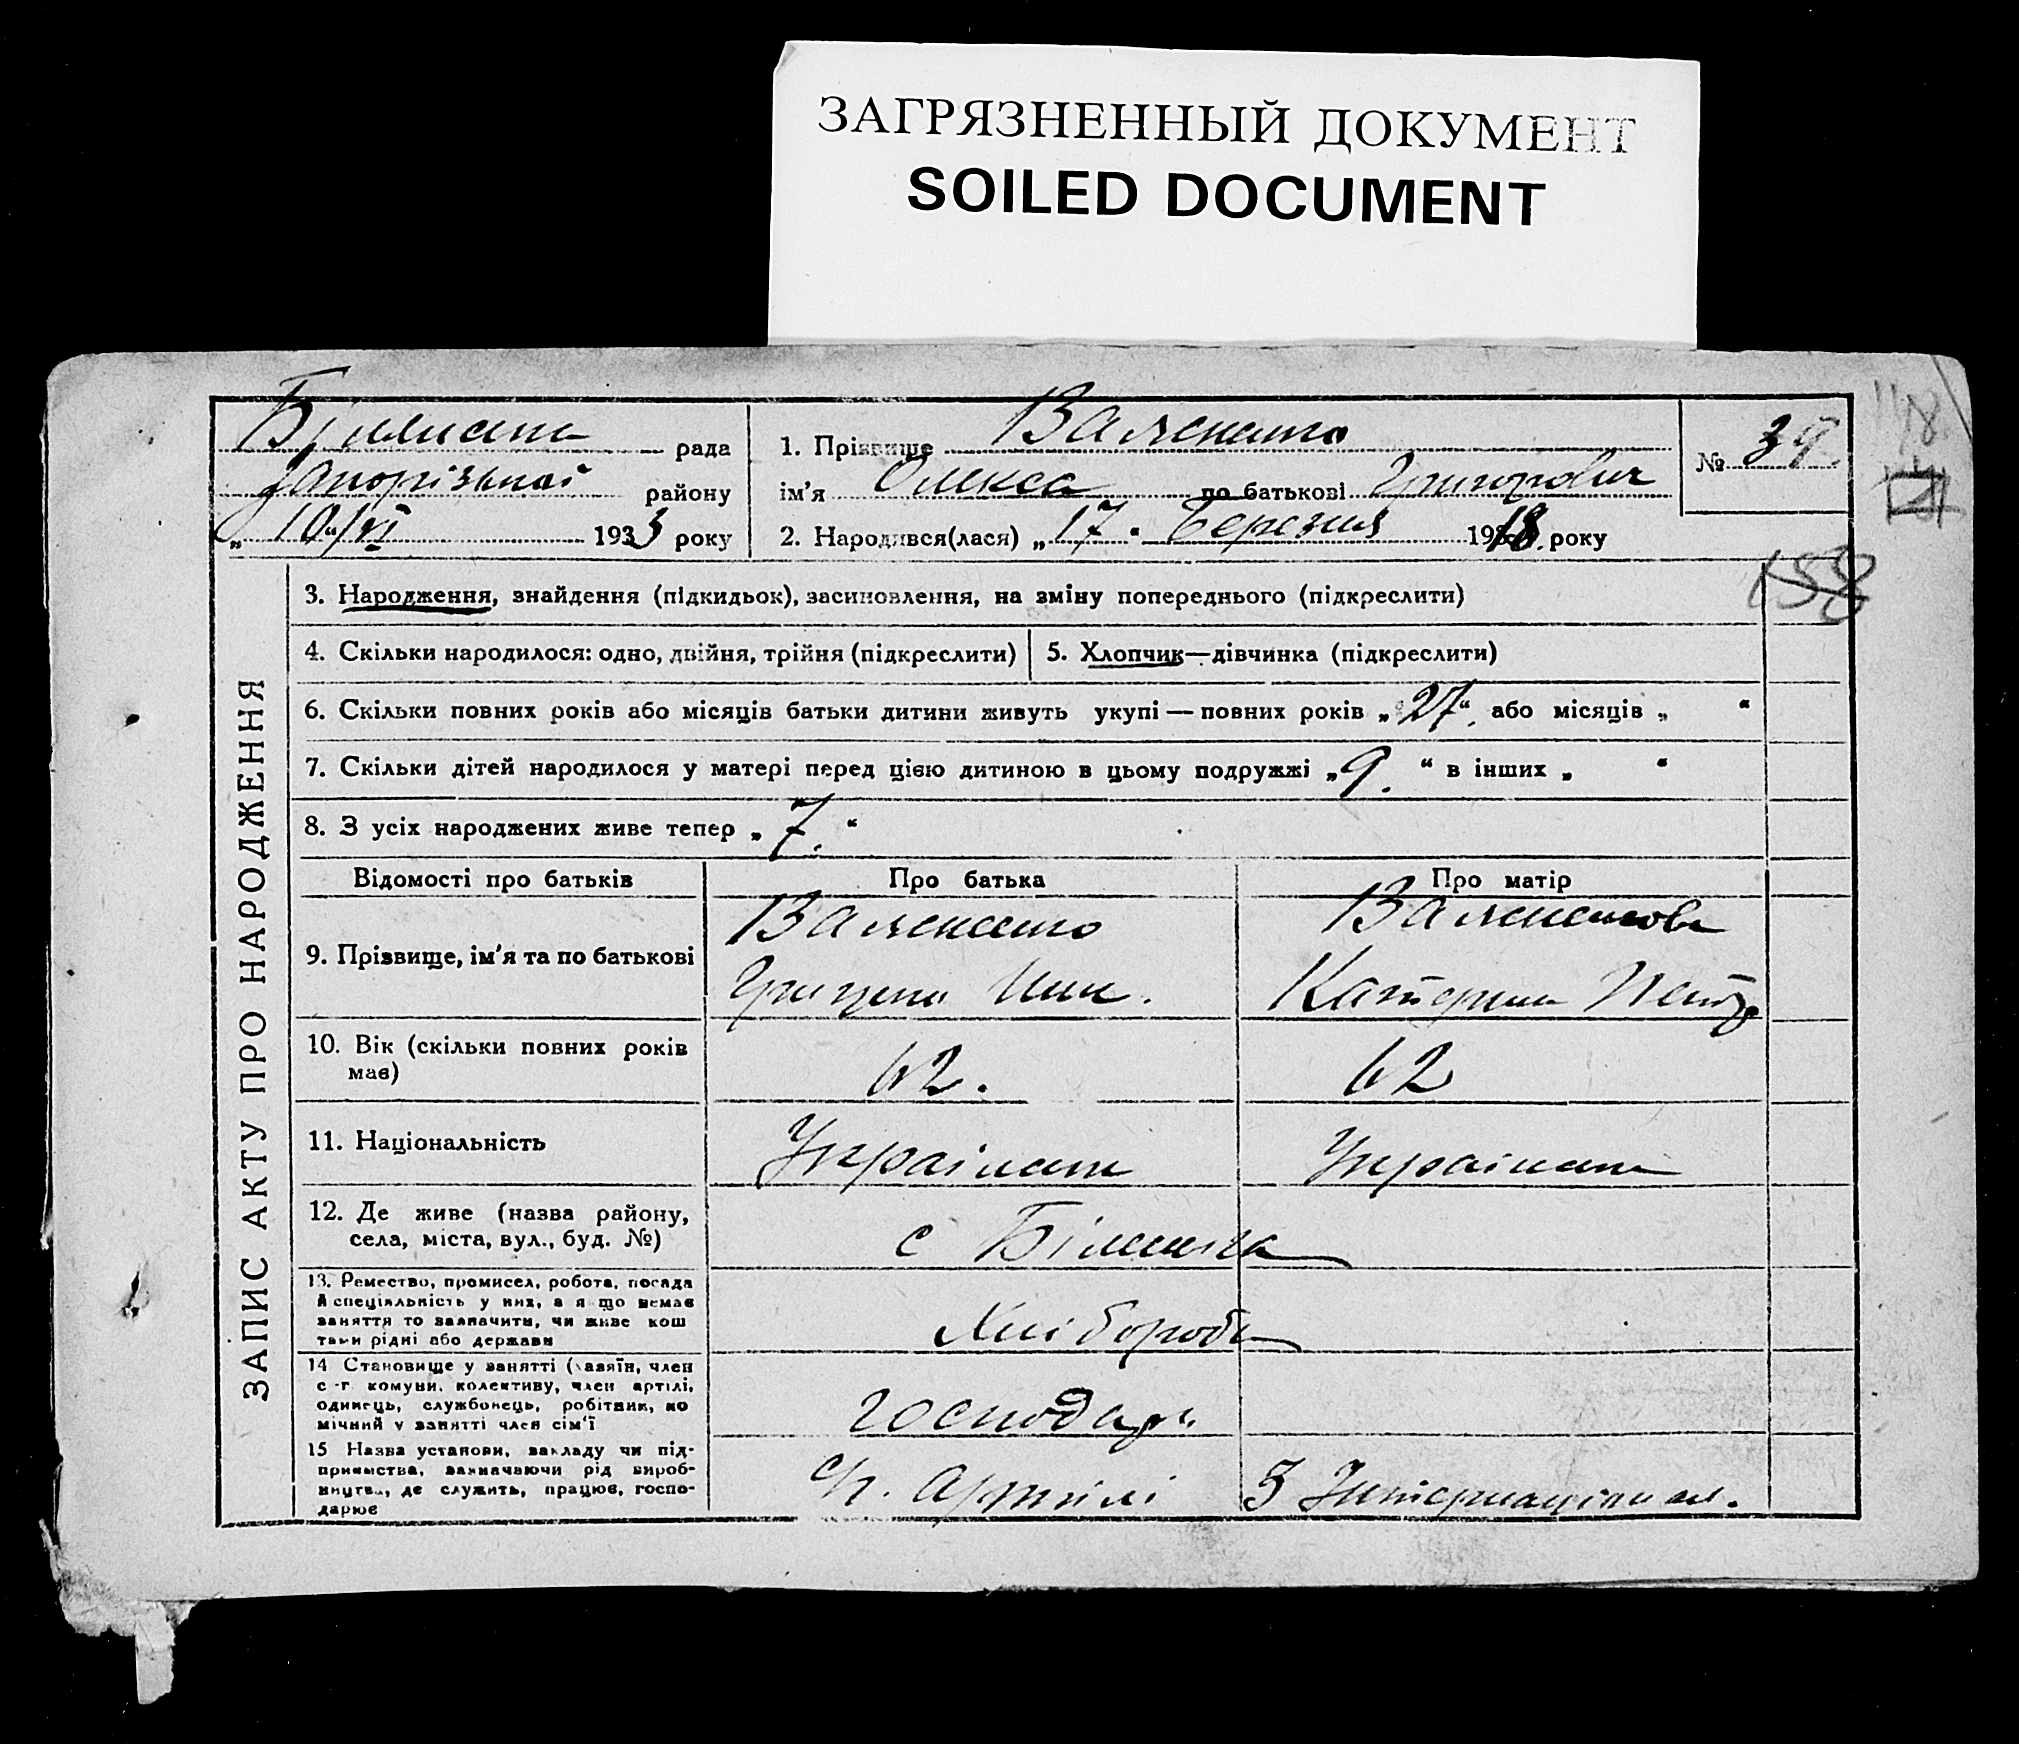 ЗАГРЯЗНЕННЫЙ ДОКУМЕНТ
SOILED DOCUMENT
рада
Запорізької району
„ 10/VI 1933 року
1. Прізвище
ім'я Олекса по батькові Григорович
2. Народився(лася) „17" Березня 1918 року
№ 39.
158
ЗАПИС АКТУ ПРО НАРОДЖЕННЯ
3. Народження, знайдення (підкидьок), засиновлення, на зміну попереднього (підкреслити)
4. Скільки народилося: одно, двійня, трійня (підкреслити)
5. Хлопчик—дівчинка (підкреслити)
6. Скільки повних років або місяців батьки дитини живуть укупі — повних років „27“, або місяців „ “
7. Скільки дітей народилося у матері перед цією дитиною в цьому подружжі „9.“ в інших „ “
8. З усіх народжених живе тепер „7.“
Відомості про батьків
Про батька
Про матір
9. Прізвище, ім'я та по батькові
Катерина Петр.
10. Вік (скільки повних років
має)
62.
62
11. Національність
Українець
Українка
12. Де живе (назва району,
села, міста, вул., буд. №)
с
13. Ремество, промисел, робота, посада
й спеціяльність у них, а якщо немає
заняття то зазначити, чи живе кош
тами рідні або держави
Хлібороб
14 Становище у занятті (хазяїн, член
с.-г. комуни, колективу, член артілі,
одинець, службовець, робітник, по
мічний у занятті член сім'ї
господарь
15 Назва установи, закладу чи під-
приємства, зазначаючи рід вироб-
ництва, де служить, працює, госпо-
дарює
Артілі 3 Інтернаціонал.